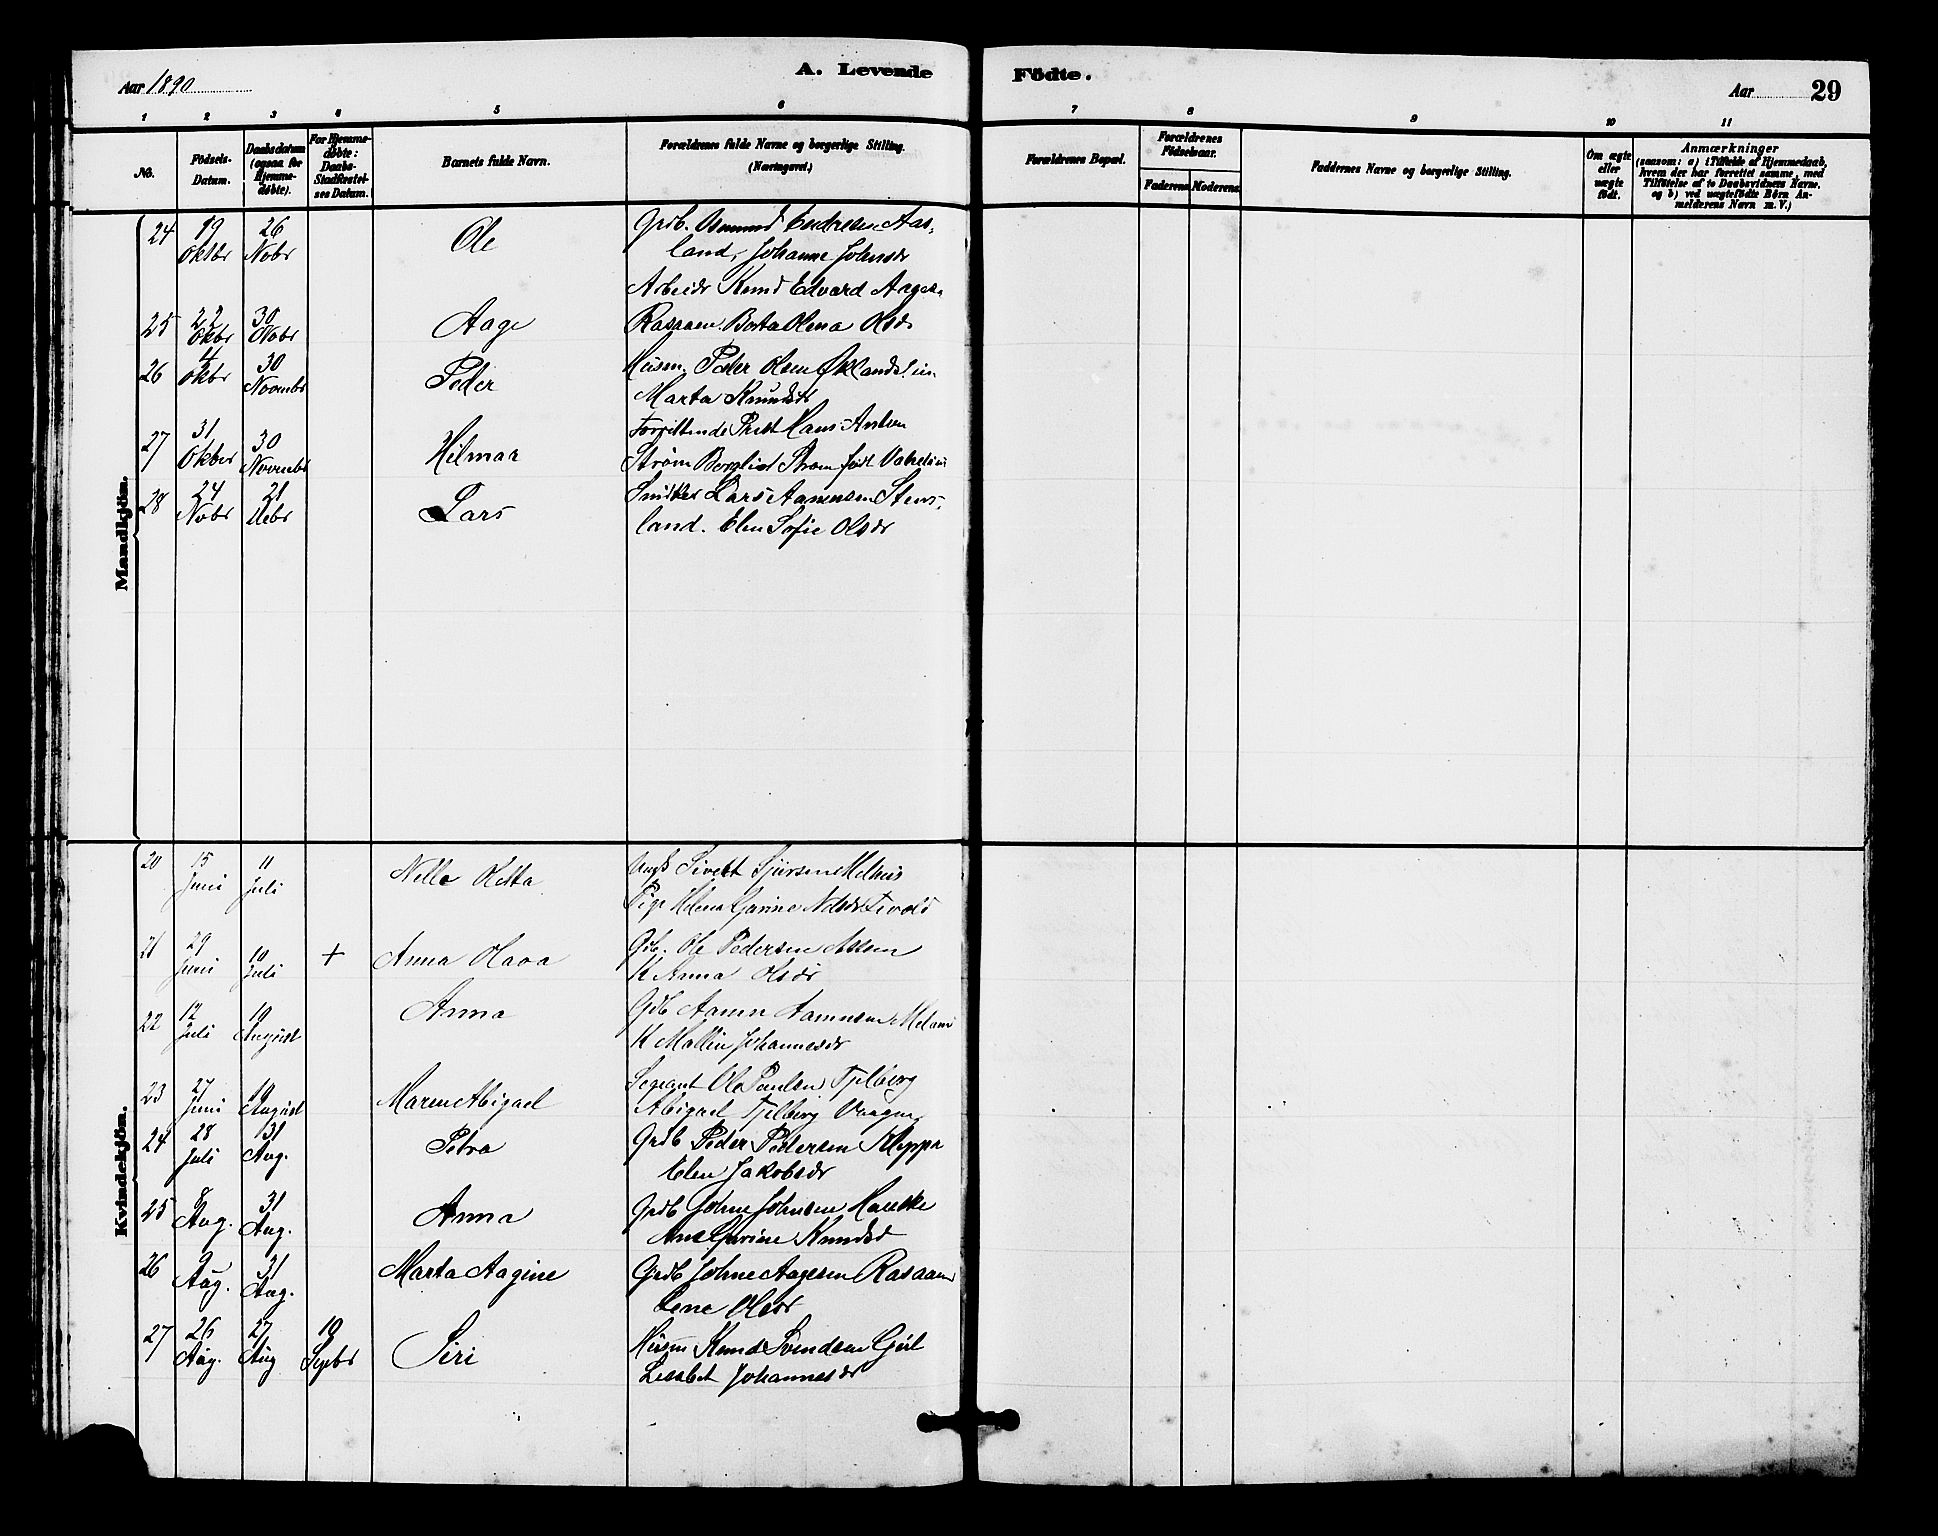 Aar 1890
A. Levende Födte.
Aar 29
1 2 3 4 5 6 7 8 9 10 11
No.
Födsels-Datum.
Daabsdatum (ogsaa for Hjemmedøbte).
For Hjemmedøbte: Daabs Stadfæstelses Datum.
Barnets fulde Navn.
Forældrenes fulde Navne og borgerlige Stilling. (Næringsvei.)
Forældrenes Bopæl.
Forældrenes Födselsaar.
Faderens Moderens
Faddernes Navne og borgerlige Stilling.
Om ægte eller uægte født.
Anmærkninger
(saasom: a) i Tilfælde af Hjemmedaab, hvem der har forrettet samme, med Tilføielse af to Daabsvidners Navne, og b) ved uægtefödte Börn Anmelderens Navn m. V.)
Mandkjön.
24 19 Oktbr 26 Nobr Ole Grdb. Osmund Endresen Aas-
land, Johanne Johnsdr
Arbeidr Knud Edvard Aages.
25 22 Okbr 30 Nobr Aage Rasaaen. Berta Olena Olsdr
26 4 Okbr 30 Novembr Peder Husm. Peder Olsen
Marta Knudsdr
27 31 Okber 30 Novembr Hilmar Forrettende Præst Hans
Strøm Strøm født
28 24 Nobr 21 Debr Lars Snidker Lars Aamnsen Stens-
land. Elen Sofie Olsdr
Kvindekjön.
20 15 Juni 11 Juli Nelle Sivert Sjursen Melhus
Pige Helena Garine
21 29 Juni 10 Juli + Anna Olava Grb. Ole Pedersen
K Anna Olsdr
22 12 Juli 10 August Anna Grdb Aamn Aamnsen
K Mallin Johannesdr
23 27 Juni 10 August Maren Abigael Sergeant Ole Paulsen Tjelberg
Abigael Tjelberg Vaagen
24 28 Juli 31 Aug. Petra Grdb Peder Pedersen Kleppe
Elen Jakobsdr
25 8 Aug. 31 Aug. Anna Grdb Johne Johnsen Hauske
Ane Gurine Knudsd
26 9 Aug. 31 Aug. Marta Aagine Grdb Johne Aagesen Rasaaen
Lene Olsdr
27 26 Aug. 27 Aug 10 Sepbr Siri Husm Knud Svendsen
Lisabet Johannesdr